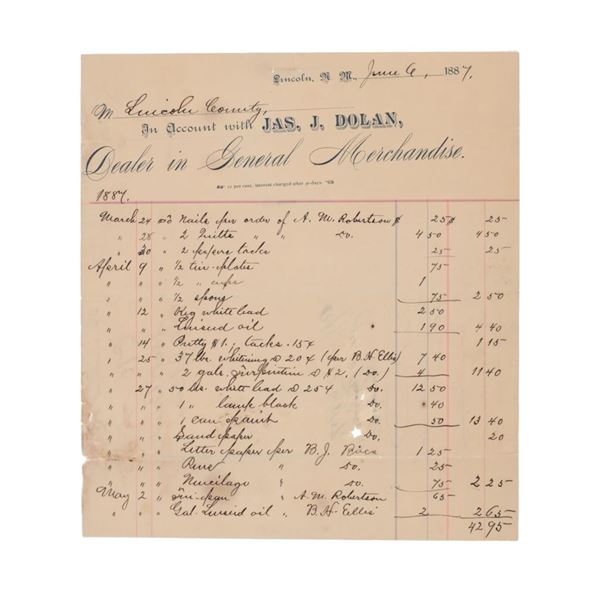 Lincoln, N. M., June 6, 1887.
M Lincoln County,
In Account with JAS. J. DOLAN,
Dealer in General Merchandise.
10 per cent. interest charged after 30 days.
1887.
March 24 To Nails per order of A. M. Robertson $ 25 $ 25
" 28 " 2 " " Do. 4 50 4 50
" 30 " 2 papers tacks 25 25
April 9 " 1/2 tin plates 75
" " " 1/2 " cups 1
" " " 1/2 " spoons 75 2 50
" 12 " Keg white lead 2 50
" " " Linseed oil 1 90 4 40
" 14 " Putty $1, tacks .15¢ 1 15
" 25 " 37 lbs. whitening @ 20¢ (per B. H. Ellis) 7 40
" " " 2 gals. Turpentine @ $2. (Do.) 4 11 40
" 27 " 50 lbs. white lead @ 25¢ Do. 12 50
" " " 1 " lamp black Do. 40
" " " 1 can paint Do. 50 13 40
" " " Sand paper Do. 20
" " " Letter paper per B. J. 1 25
" " " Pens " Do. 25
" " " Mucilage " Do. 75 2 25
May 2 " Tin " A. M. Robertson 65
" " " Gal. Linseed oil " B. H. Ellis 2 2 65
42 95